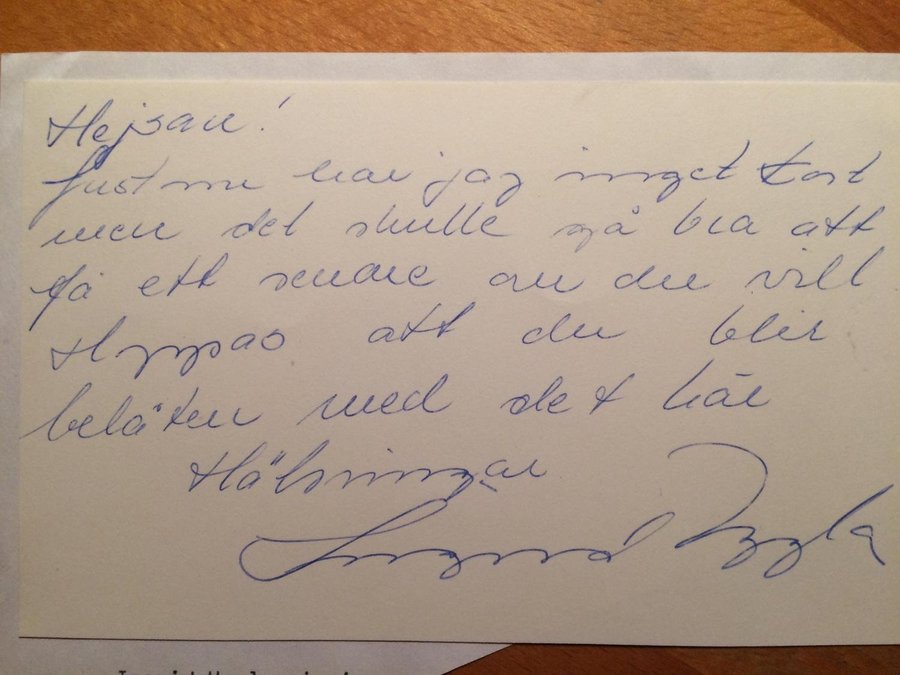 Hejsan!
Just nu har jag inget kort
men det skulle gå bra att
få ett senare om du vill
Hoppas att du blir
belåten med det här
Hälsningar
Ingrid